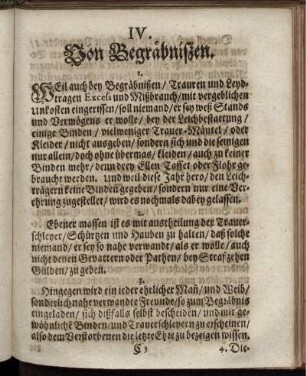 IV.
Von Begräbnißen.
1.
WEil auch bey Begräbnißen / Trauren und Leyd-
tragen Excels und Mißbrauch / mit vergeblichen
Unkosten eingerissen / soll niemand / er sey weß Stands
und Vermögens er wolle / bey der Leichbestattung /
einige Binden / vielweniger Trauer-Mäntel / oder
Kleider / nicht ausgeben / sondern sich und die seinigen
nur allein / doch ohne übermas / kleiden / auch zu keiner
Binden mehr / denn drey Ellen Taffet oder Flohr ge-
braucht werden. Und weil diese Jahr hero / den Leich-
trägern keine Binden gegeben / sondern nur eine Ver-
ehrung zugestellet / wird es nochmals dabey gelassen.
2.
Ebener massen ist es mit austheilung der Trauer-
schleyer / Schürtzen und Hauben zu halten / daß solche
niemand / er sey so nahe verwandt / als er wolle / auch
nicht denen Gevattern oder Pathen / bey Straf zehen
Gülden / zu geben.
3.
Hingegen wird ein ieder ehrlicher Mañ / und Weib /
sonderlich nahe verwandte Freunde / so zum Begräbnis
eingeladen / sich dißfalls selbst bescheiden / und mit ge-
wöhnlichẽ Binden / und Trauerschleyern zu erscheinen /
also dem Verstorbenen die letzte Ehre zu bezeigen wissen.
C 3 4. Die-